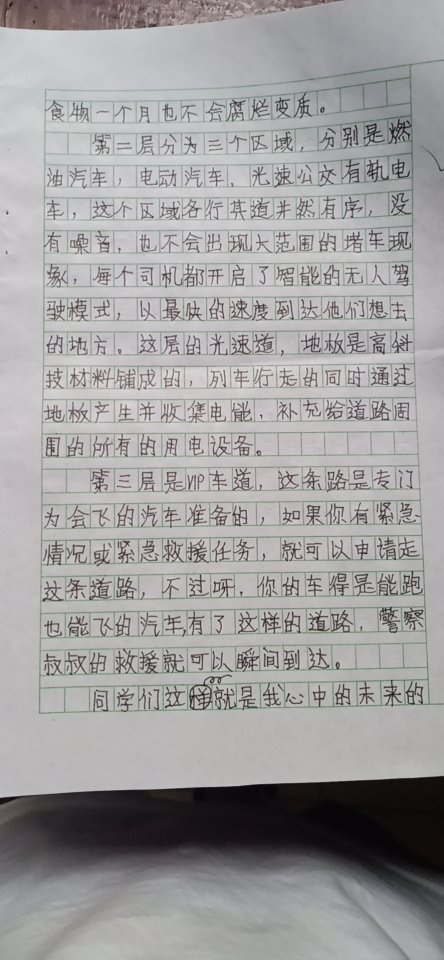 食物一个月也不会腐烂变质。
第二层分为三个区域，分别是燃
油汽车，电动汽车、光速公交有轨电
车，这个区域各行其道井然有序，没
有噪音，也不会出现大范围的堵车现
象，每个司机都开启了智能的无人驾
驶模式，以最快的速度到达他们想去
的地方。这层的光速道，地板是高科
技材料铺成的，列车行走的同时通过
地板产生并收集电能，补充给道路周
围的所有的用电设备。
第三层是VIP车道，这条路是专门
为会飞的汽车准备的，如果你有紧急
情况或紧急救援任务，就可以申请走
这条道路，不过呀，你的车得是能跑
也能飞的汽车，有了这样的道路，警察
叔叔的救援就可以瞬间到达。
同学们这就是我心中的未来的